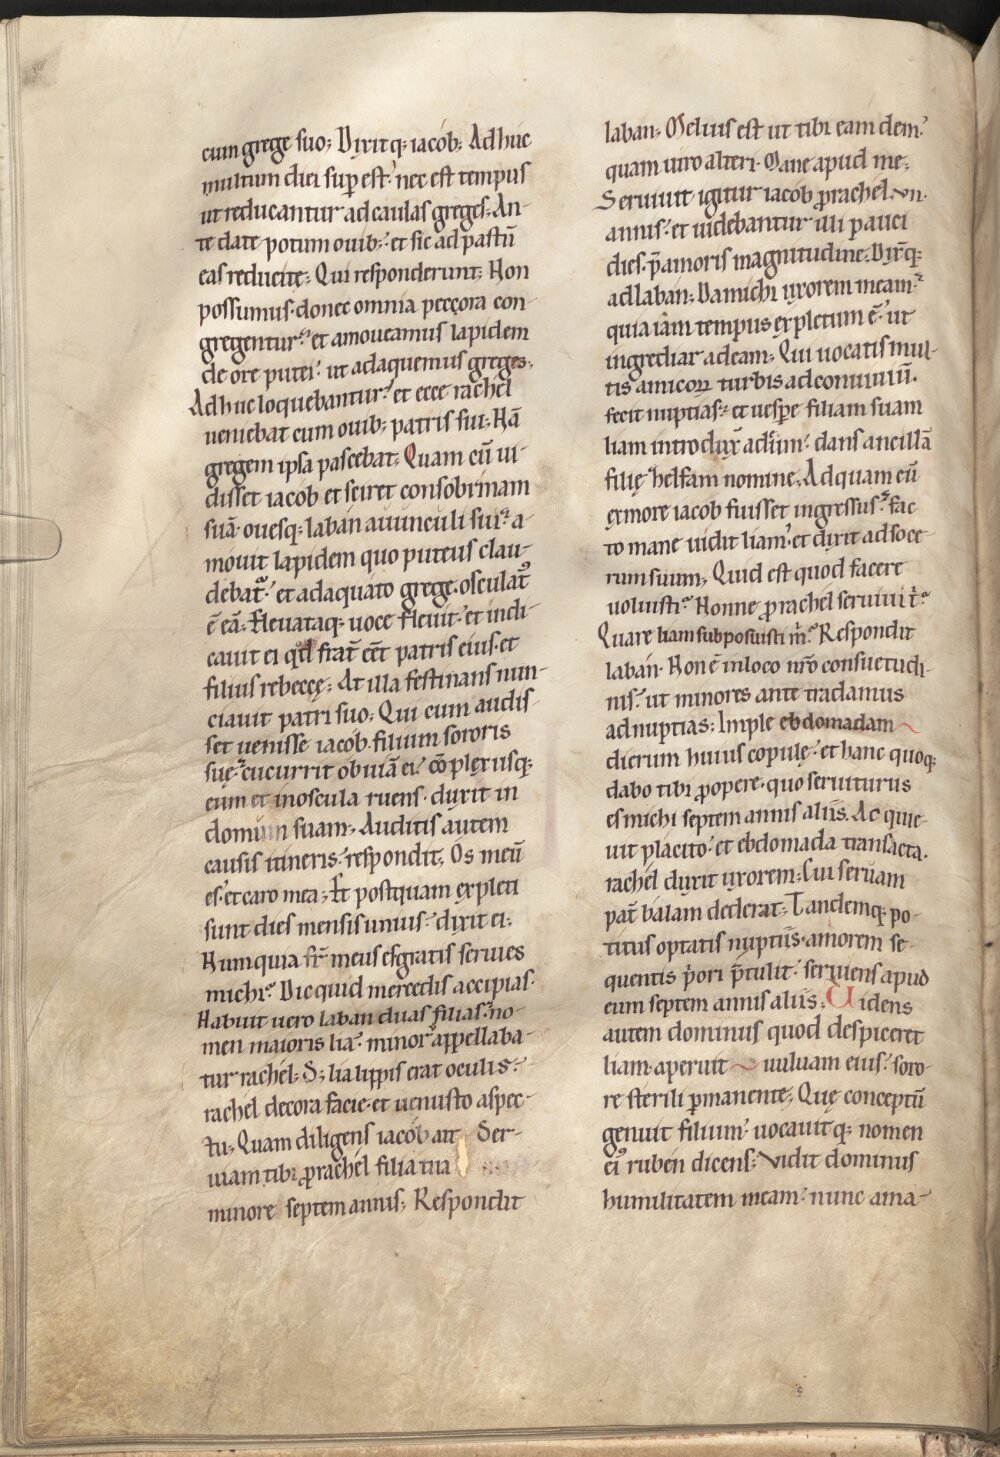 cum grege suo; Dixitq; iacob; Adhuc
multum diei sup est. nec est tempus
ut reducantur ad caulas greges; An-
te date potum ouib; et sic ad pastū
eas reducite; Qui responderunt; Non
possumus. donec omnia peccora con-
gregentur. et amoueamus lapidem
de ore putei. ut adaquemus greges.
Adhuc loquebantur. et ecce rachel
ueniebat cum ouib; patris sui; Nā
gregem ipsa pascebat; Quam cū ui-
disset iacob et sciret consobrinam
suā. ouesq; laban auunculi sui. a-
mouit lapidem quo puteus clau-
debat. et adaquato grege. osculat᾽
ē eā; Eleuataq; uoce fleuit. et indi-
cauit ei qd frat̄ eēt patris eius. et
filius rebeccę; At illa festinans nun-
ciauit patri suo; Qui cum audis-
set uenisse iacob filium sororis
suę. cucurrit obuiā ei. cōplexusq;
eum et inoscula ruens. duxit in
domum suam; Auditis autem
causis itineris. respondit; Os meū
es. et caro mea; Et postquam expleti
sunt dies mensis unius. dixit ei;
Num quia fr̄ meus es gratis seruies
michi? Dic quid mercedis accipias.
Habuit uero laban duas filias. no-
men maioris lia. minor appellaba-
tur rachel; S; lia lippis erat oculis.
rachel decora facie. et uenusto aspec-
tu; Quam diligens iacob ait Ser-
uiam tibi ꝓrachel filia tua
minore septem annis; Respondit
laban; Melius est ut tibi eam dem.
quam uiro alteri. Mane apud me;
Seruiuit igitur iacob ꝓrachel. vii.
annis. et uidebantur illi pauci
dies. p̄amoris magnitudine; Dix̄q;
ad laban; Da michi uxorem meam.
quia iam tempus expletum ē. ut
ingrediar ad eam; Qui uocatis mul-
tis amicoꝝ turbis ad conuiuiū.
fecit nuptias. et uespe filiam suam
liam introdux̄ ad eum. dans ancillā
filię helfam nomine; Ad quam cū
ex more iacob fuisset ingressus. fac-
to mane uidit liam. et dixit ad soce-
rum suum; Quid est quod facere
uoluisti? Nonne ꝓrachel seruiui t̄?
Quare liam subposuisti m̄? Respondit
laban. Non ē inloco nr̄o consuetudi-
nis. ut minores ante tradamus
ad nuptias; Imple ebdomadam
dierum huius copulę. et hanc quoq;
dabo tibi ꝓopere. quo seruiturus
es michi septem annis aliis. Ac quie-
uit placito. et ebdomada transacta.
rachel duxit uxorem; Cui seruam
pat̄ balam dederat; Tandemq; po-
titus optatis nuptiis. amorem se-
quentis p̄ori p̄tulit. seruiens apud
eum septem annis aliis; Uidens
autem dominus quod despiceret
liam. aperuit uuluam eius. soro-
re sterili ꝑmanente; Quę conceptū
genuit filium. uocauitq; nomen
ei᾽ ruben dicens; Vidit dominus
humilitatem meam. nunc ama-